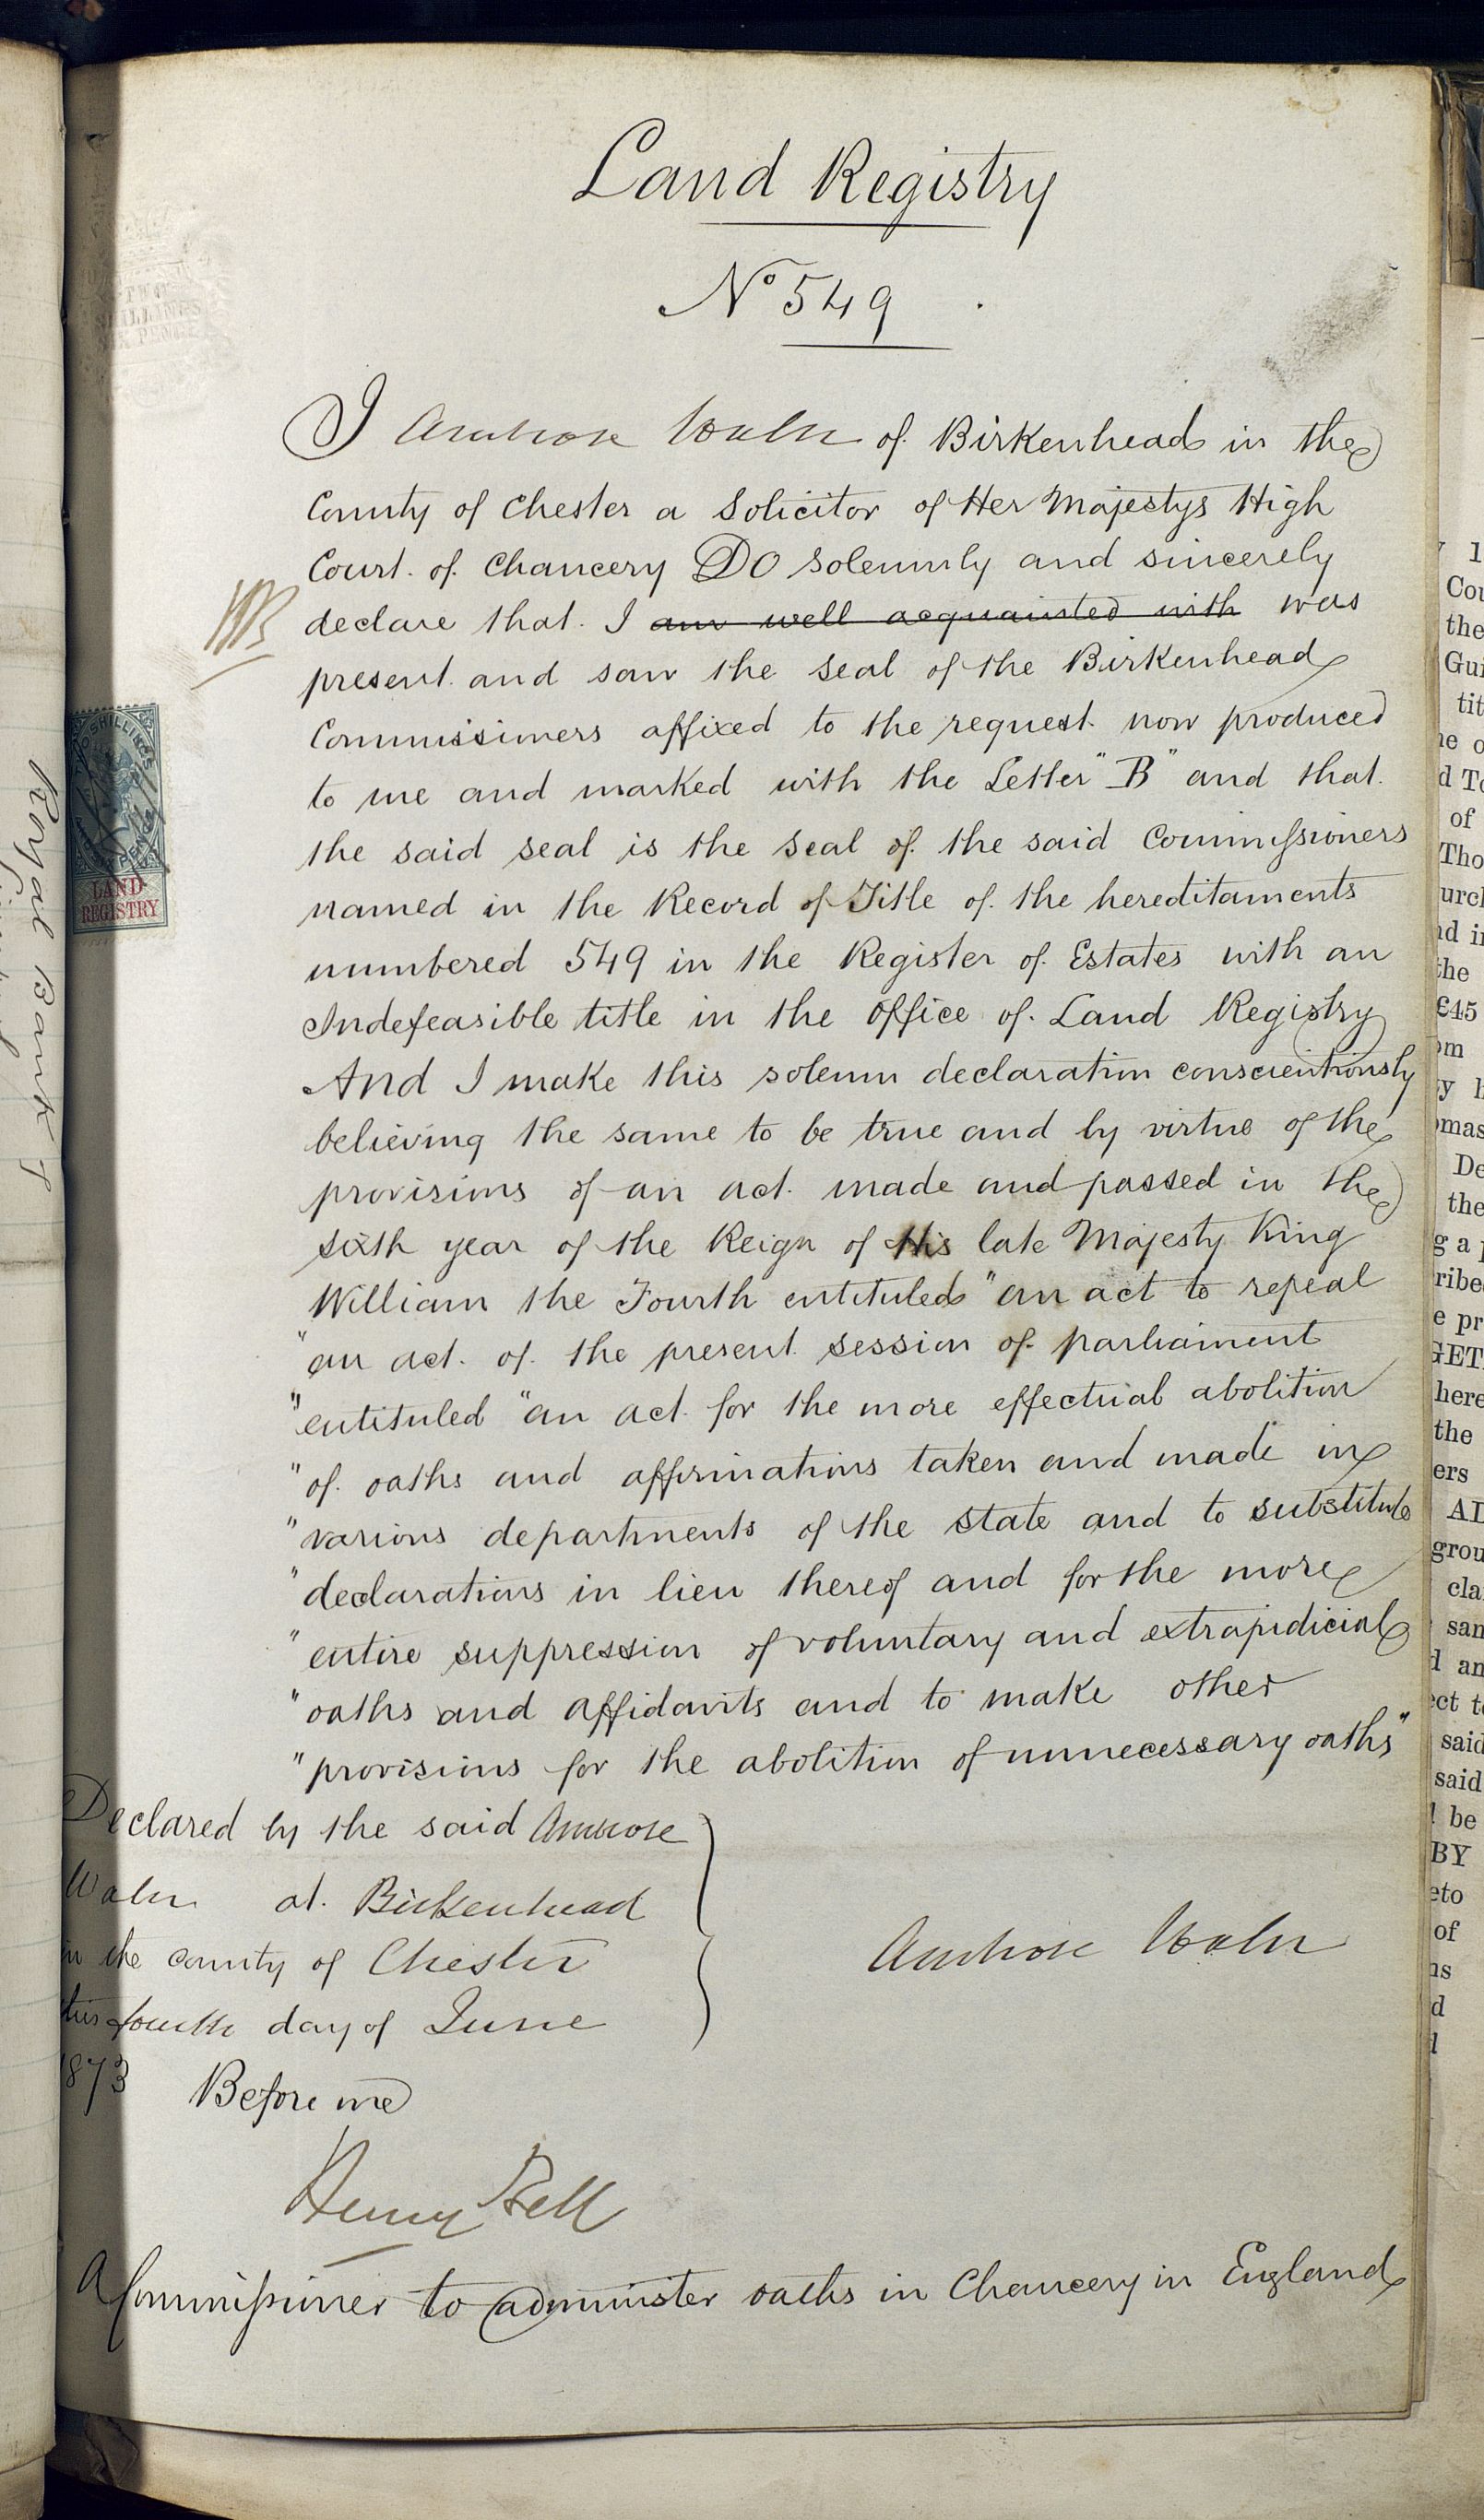 Land Registry
No 549
I Ambrose Waln of Birkenhead in the
County of Chester a Solicitor of Her Majestys High
Court of Chancery DO solemnly and sincerely
declare that I am well acquainted with was
present and saw the seal of the Birkenhead
Commissioners affixed to the request now produced
to me and marked with the Letter "B" and that
the said seal is the seal of the said Commissioners
named in the Record of Title of the hereditaments
numbered 549 in the Register of Estates with an
Indefeasible title in the office of Land Registry
And I make this solemn declaration conscientiously
believing the same to be true and by virtue of the
provisions of an act made and passed in the
sixth year of the Reign of His late Majesty King
William the Fourth entituled "an act to repeal
"an act of the present session of parliament
"entituled "an act for the more effectual abolition
"of oaths and affirmations taken and made in
"various departments of the state and to substitute
"declarations in lieu thereof and for the more
"entire suppression of voluntary and extrajudicial
"oaths and affidavits and to make other
"provisions for the abolition of unnecessary oaths"
Declared by the said Ambrose
Waln at Birkenhead
in the county of Chester
this fourth day of June
1873
Before me
Ambrose Waln
Henry Bell
A Commissioner to administer oaths in Chancery in England
SHILLINGS
LAND
REGISTRY
Royal Bank